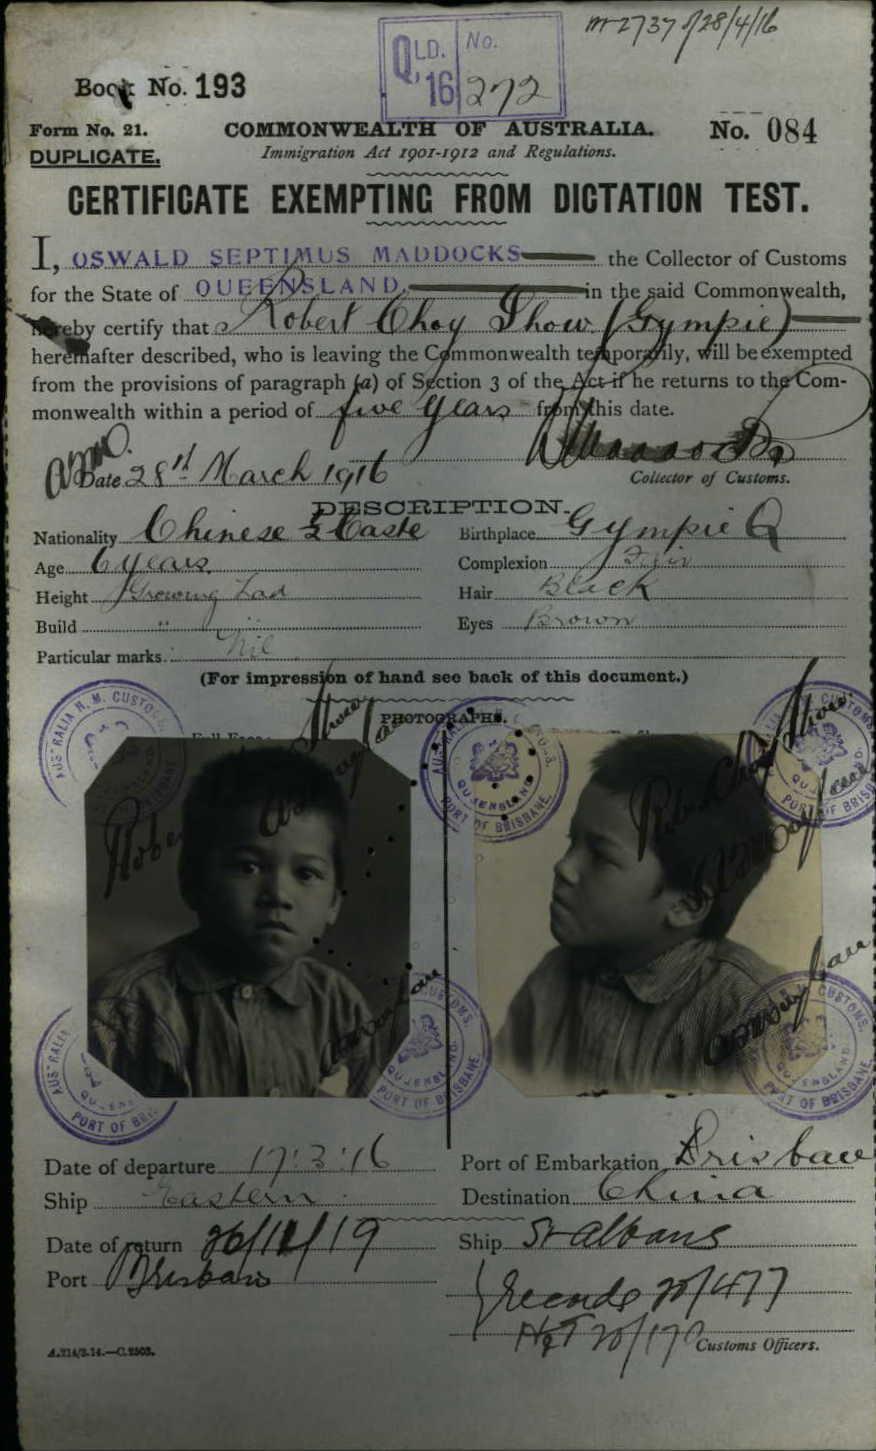 QLD. No.
'16 272
Book No. 193
Form No. 21.
COMMONWEALTH OF AUSTRALIA.
No. 084
DUPLICATE.
Immigration Act 1901-1912 and Regulations.
CERTIFICATE EXEMPTING FROM DICTATION TEST.
I, OSWALD SEPTIMUS MADDOCKS the Collector of Customs
for the State of QUEENSLAND. in the said Commonwealth,
hereby certify that Robert Choy Show (Gympie)
hereinafter described, who is leaving the Commonwealth temporarily, will be exempted
from the provisions of paragraph (a) of Section 3 of the Act if he returns to the Com-
monwealth within a period of five years from this date.
Date 28th March 1916
Collector of Customs.
DESCRIPTION.
Nationality Chinese ½ Caste Birthplace Gympie Q
Age 6 years Complexion Fair
Height Growing Lad Hair Black
Build " " Eyes Brown
Particular marks Nil
(For impression of hand see back of this document.)
PHOTOGRAPHS.
AUSTRALIA H. M. CUSTOMS.
QUEENSLAND.
PORT OF BRISBANE.
Date of departure 17.3.16 Port of Embarkation Brisbane
Ship Eastern Destination China
Date of return Ship St Albans
Port Brisbane
Customs Officers.
A.214/3.14.—C.2503.